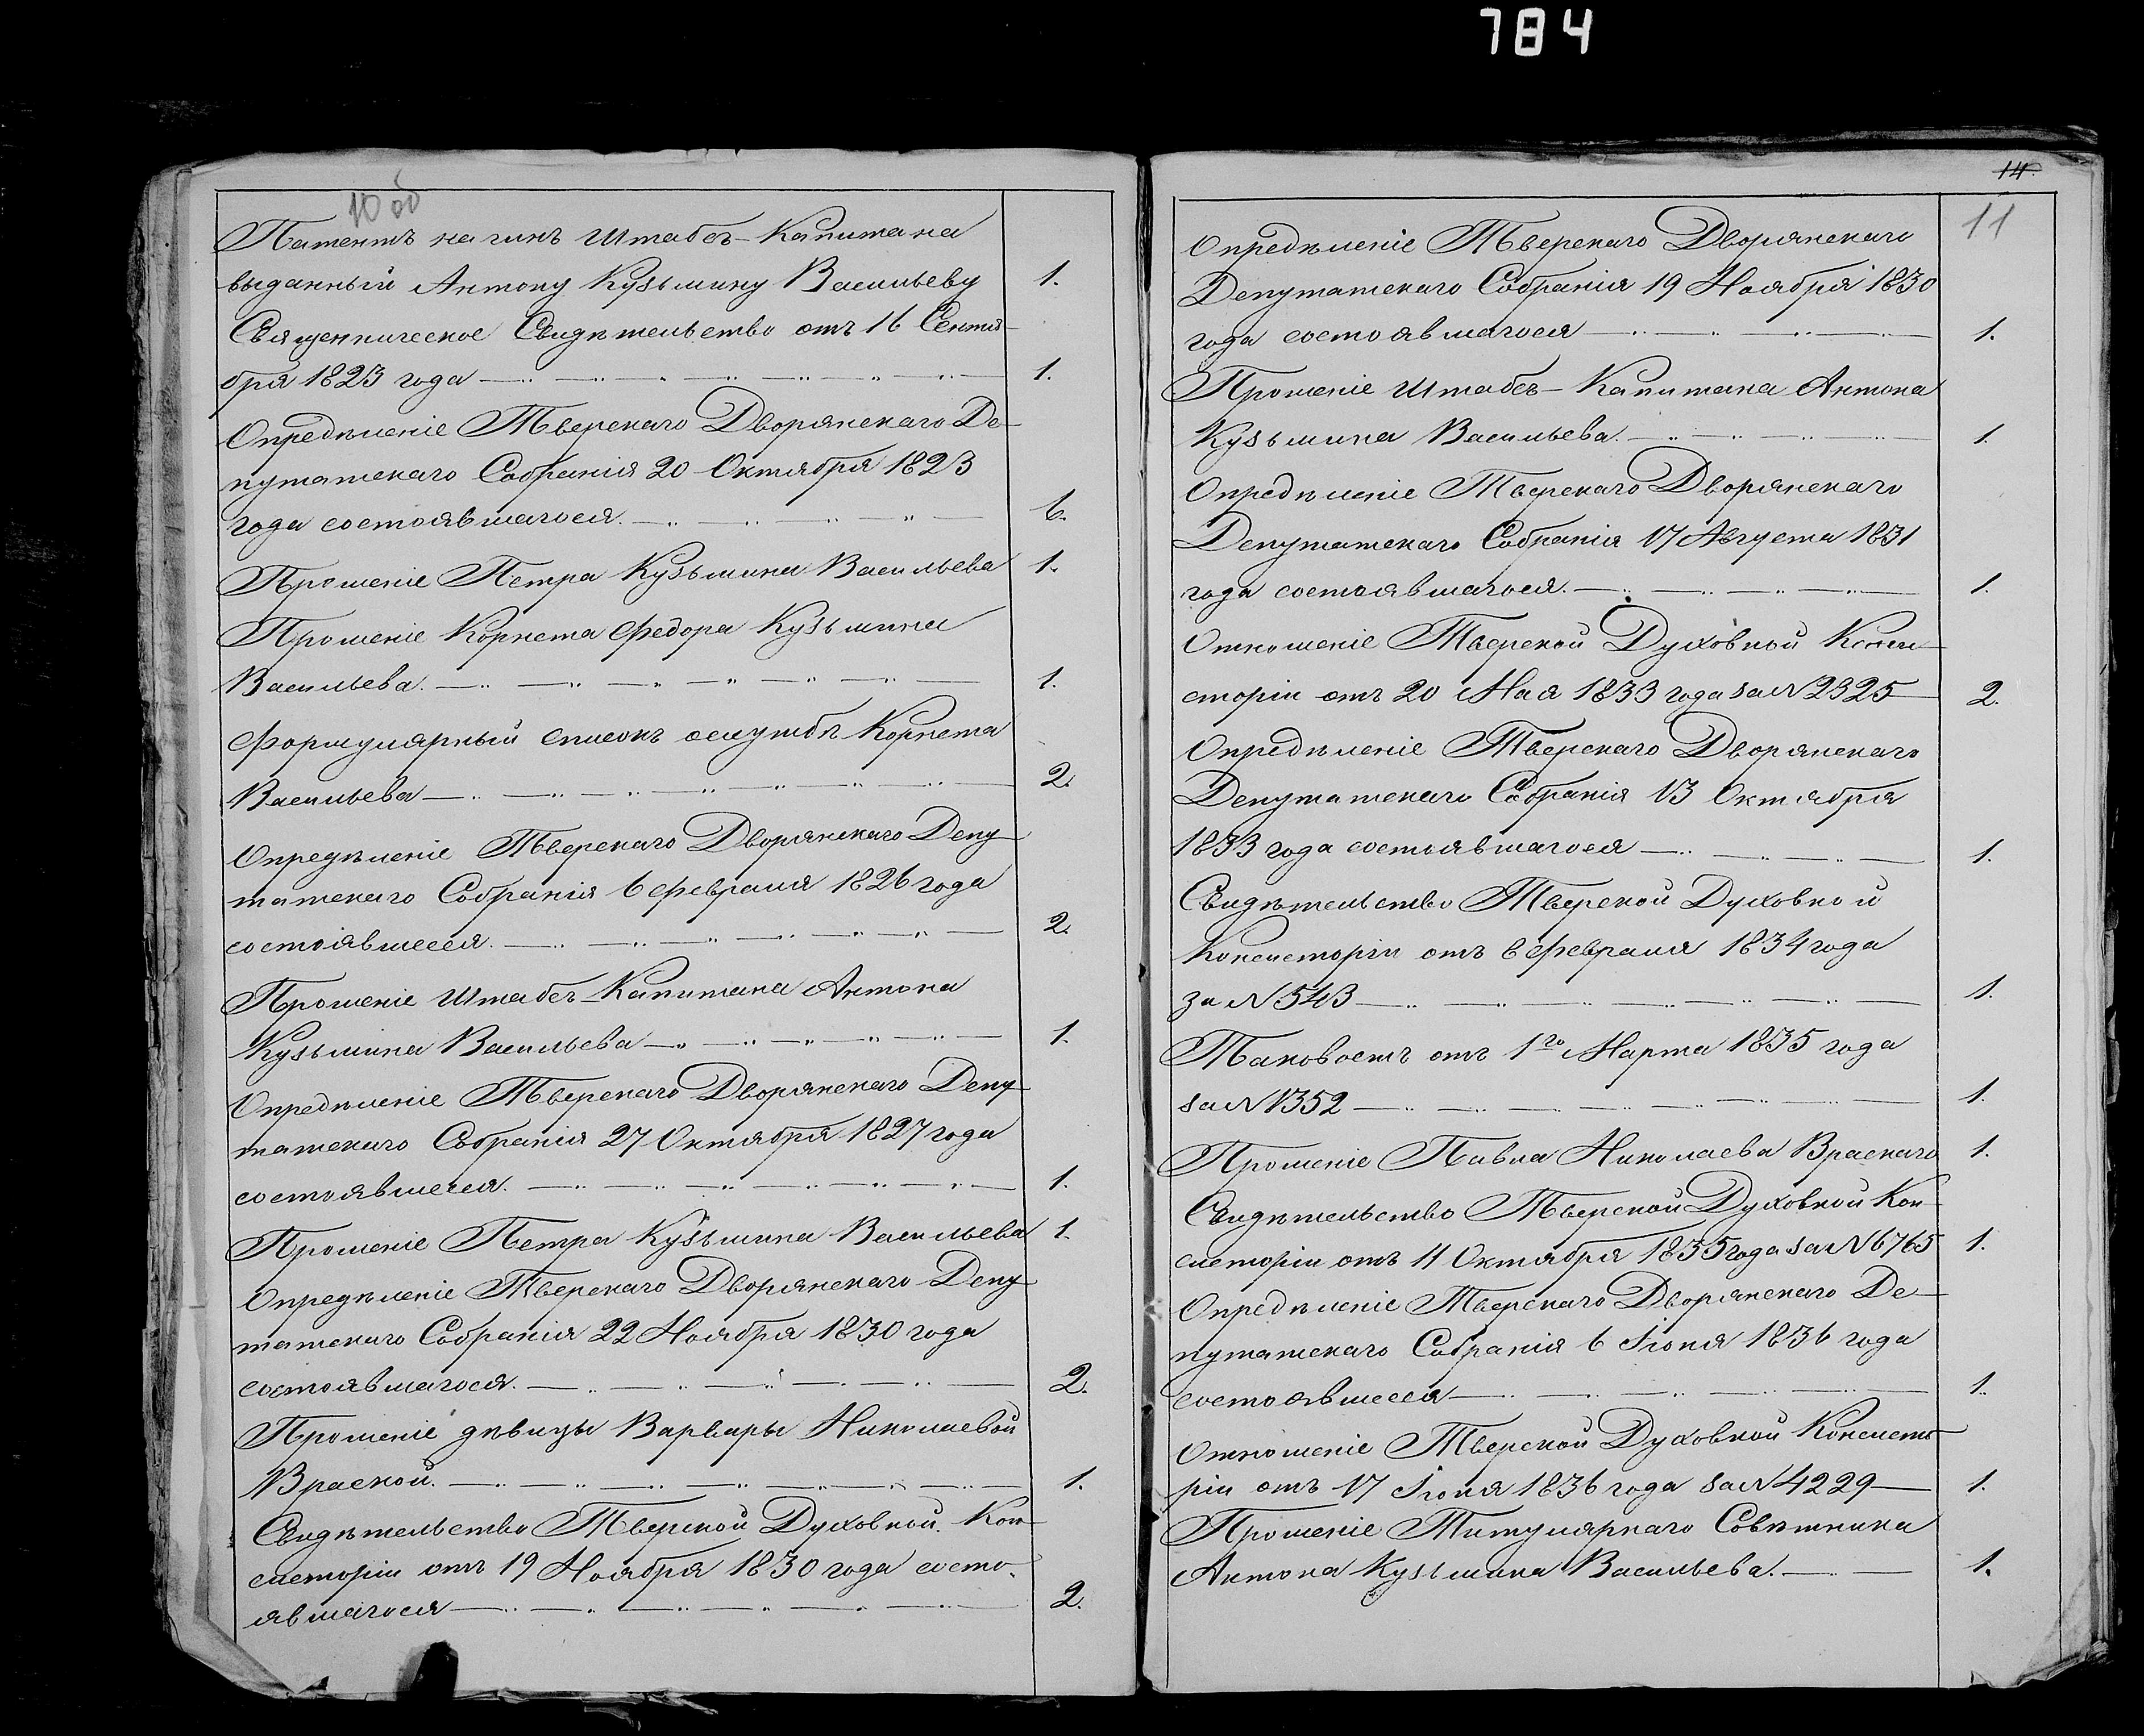 784
10 об
Патентъ на чинъ Штабсъ-Капитана
выданный Антону Кузьмину Васильеву 1.
Священническое Свидѣтельство отъ 16 Сентя-
бря 1823 года 1.
Опредѣленіе Тверскаго Дворянскаго Де-
путатскаго Собранія 20 Октября 1823
года состоявшагося. 6.
Прошеніе Петра Кузьмина Васильева 1.
Прошеніе Корнета Федора Кузьмина
Васильева. 1.
Формулярный списокъ о службѣ Корнета
Васильева 2.
Опредѣленіе Тверскаго Дворянскаго Депу-
татскаго Собранія 6 Февраля 1826 года
состоявшееся. 2.
Прошеніе Штабсъ-Капитана Антона
Кузьмина Васильева 1.
Опредѣленіе Тверскаго Дворянскаго Депу-
татскаго Собранія 27 Октября 1827 года
состоявшееся. 1.
Прошеніе Петра Кузьмина Васильева 1.
Опредѣленіе Тверскаго Дворянскаго Депу-
татскаго Собранія 22 Ноября 1830 года
состоявшагося. 2.
Прошеніе дѣвицы Варвары Николаевой
Враской. 1.
Свидѣтельство Тверской Духовной Кон-
систоріи отъ 19 Ноября 1830 года состо-
явшагося 2.
14.
11
Опредѣленіе Тверскаго Дворянскаго
Депутатскаго Собранія 19 Ноября 1830
года состоявшагося 1.
Прошеніе Штабсъ-Капитана Антона
Кузьмина Васильева. 1.
Опредѣленіе Тверскаго Дворянскаго
Депутатскаго Собранія 17 Августа 1831
года состоявшагося. 1.
Отношеніе Тверской Духовной Конси-
сторіи отъ 20 Мая 1833 года за N 2325 2.
Опредѣленіе Тверскаго Дворянскаго
Депутатскаго Собранія 13 Октября
1833 года состоявшагося 1.
Свидѣтельство Тверской Духовной
Консисторіи отъ 6 Февраля 1834 года
за N 543 1.
Таковоежъ отъ 1го Марта 1835 года
за N 1352 1.
Прошеніе Павла Николаева Враскаго 1.
Свидѣтельство Тверской Духовной Кон-
систоріи отъ 11 Октября 1835 года за N 6765 1.
Опредѣленіе Тверскаго Дворянскаго Де-
путатскаго Собранія 6 Іюня 1836 года
состоявшееся 1.
Отношеніе Тверской Духовной Консисто-
ріи отъ 17 Іюня 1836 года за N 4229 1.
Прошеніе Титулярнаго Совѣтника
Антона Кузьмина Васильева. 1.